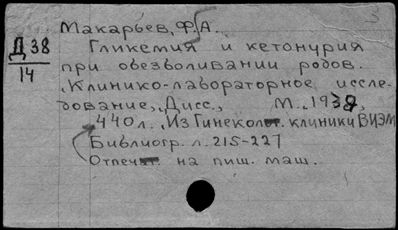 Макарьев, Ф.А.
Д 38
14
Гликемия и кетонурия
при обезволивании родов.
Клинико-лабораторное иссле-
дование, Дисс., М., 1938,
440 л., Из Гинеколог. клиники ВИЭМ
Библиогр. л. 215-227
Отпечат. на пиш. маш.